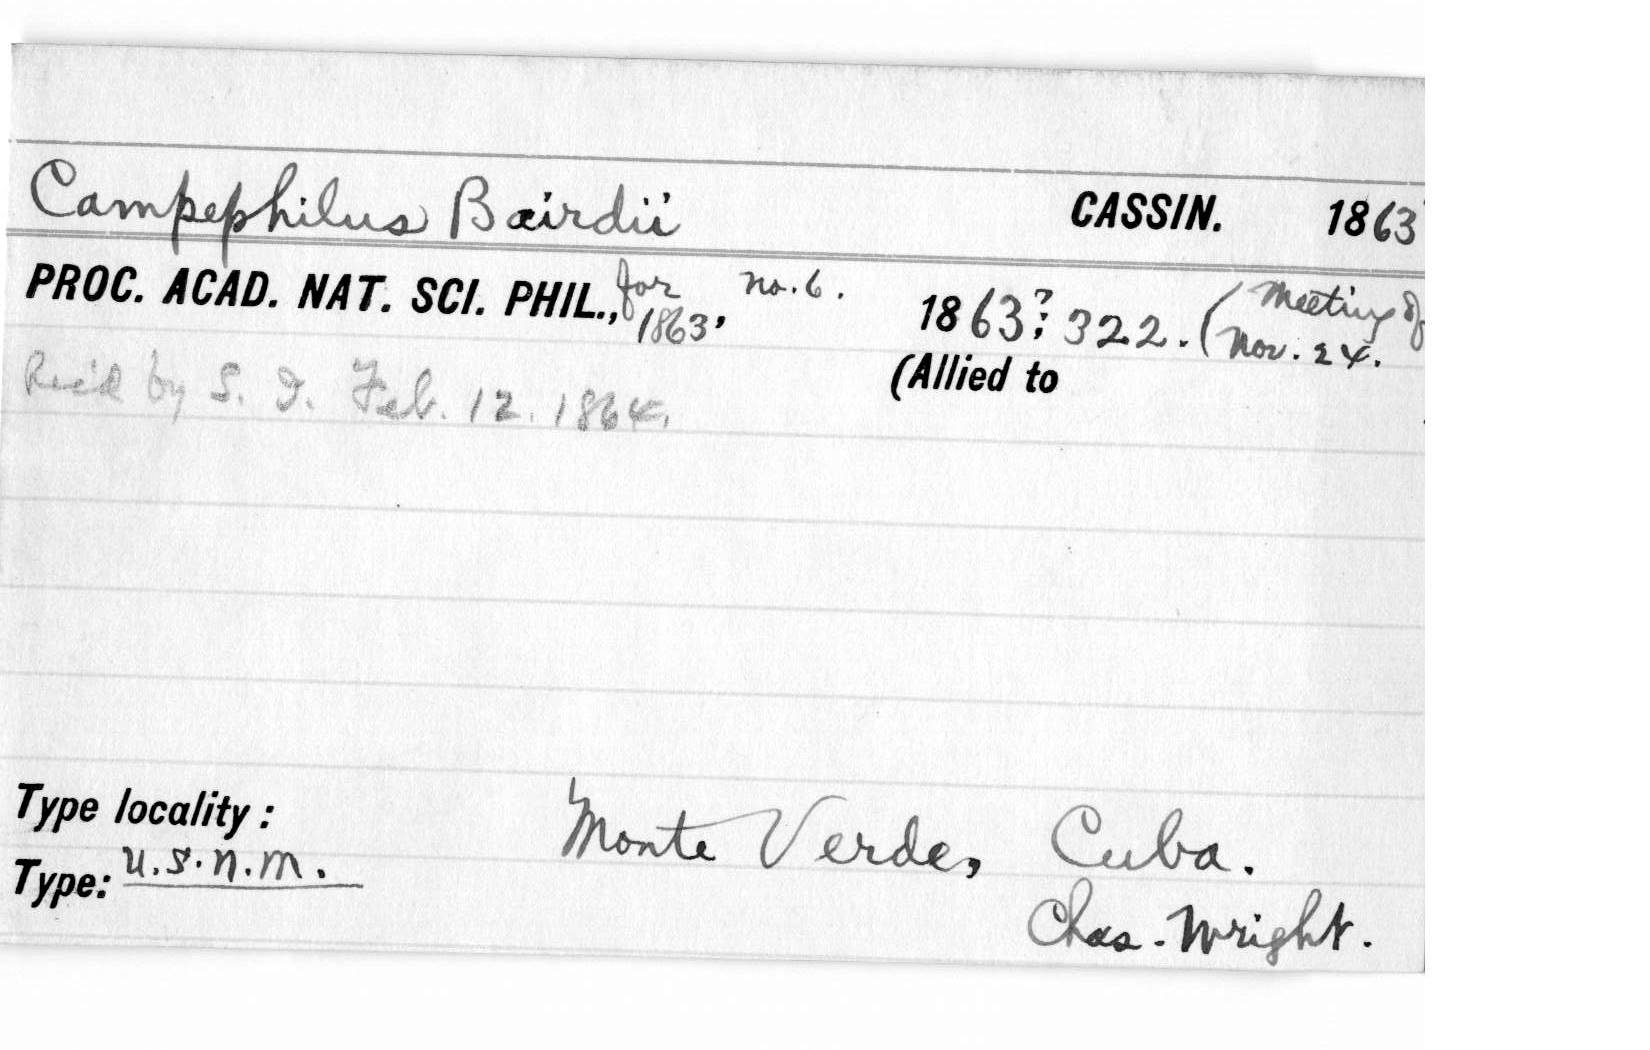 Campephilus Bairdii CASSIN. 1863
PROC. ACAD. NAT. SCI. PHIL., for 1863, no. 6. 1863?: 322. (Meeting of Nov. 24.
(Allied to
Rec'd by S. I. Feb. 12. 1864.
Type locality: Monte Verde, Cuba.
Type: U.S.N.M.
Chas. Wright.